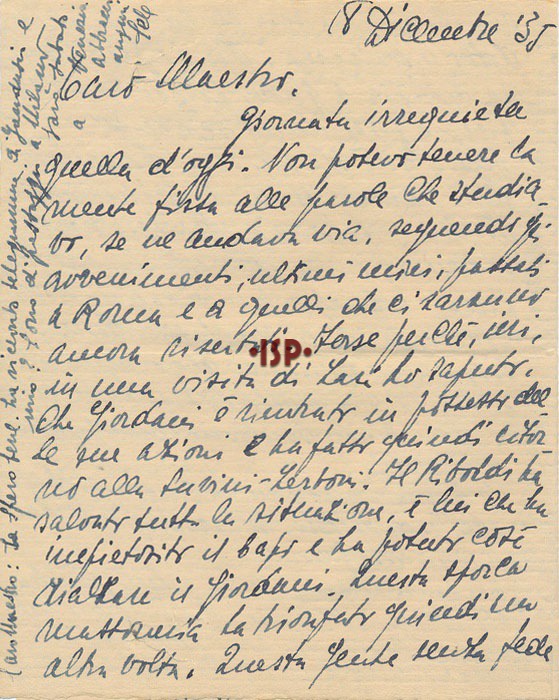 8 Dicembre '35
Caro Maestro,
Giornata irrequieta
quella d'oggi. Non potevo tenere la
mente fissa alle parole che studia-
vo, se ne andava via, seguendo gli
avvenimenti, ultimi miei, passati
a Roma e a quelli che ci saranno
ancora riserbati. Forse perchè, ieri,
in una visita di ho saputo,
che Giordani è rientrato in possesso del
le sue azioni e ha fatto quindi ritor
no alla Suvini-Zerboni. Il Riboldi ha
salvato tutta la situazione, è lui che ha
impietosito il capo e ha potuto così
rialzare il Giordani. Questa sporca
massoneria ha trionfato quindi una
altra volta. Questa gente senza fede
Caro Maestro: La spero bene. Ha ricevuto telegramma di e
mio? Sono a Milano
Sarò
a Venezia
Abbracci
auguri
•ISP•